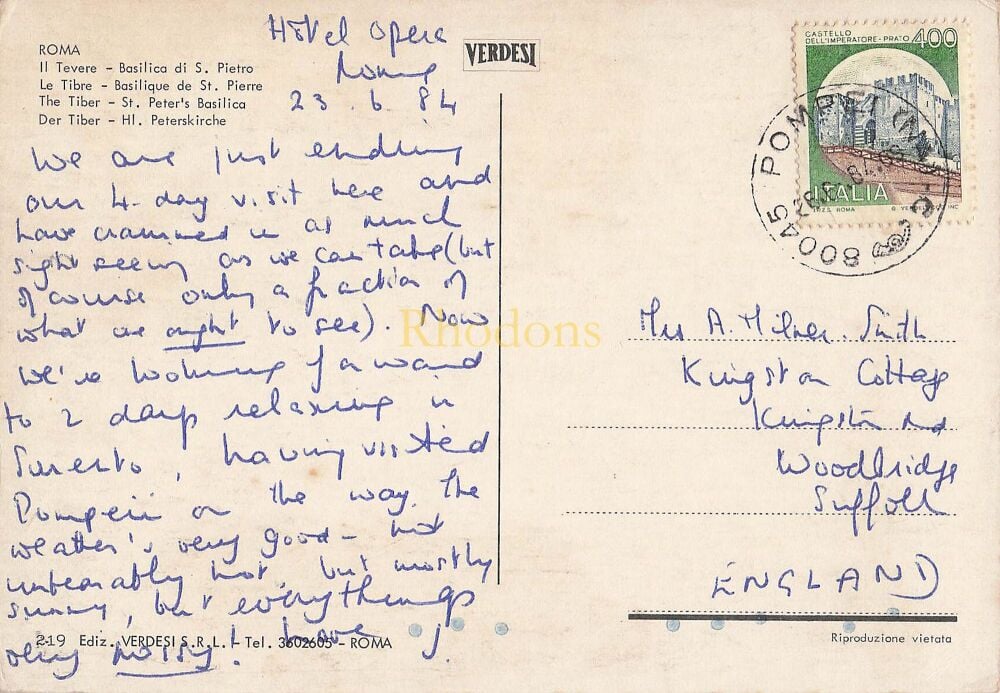 ROMA
Il Tevere – Basilica di S. Pietro
Le Tibre – Basilique de St. Pierre
The Tiber – St. Peter's Basilica
Der Tiber – Hl. Peterskirche
Hotel Opera
Rome
23. 6 84
We are just ending
our 4-day visit here and
have crammed in as much
sight seeing as we can take (but
of course only a fraction of
what we ought to see). Now
We're looking forward
to 2 days relaxing in
Sorrento, having visited
Pompeii on the way. The
weather's very good – not
unbearably hot, but mostly
sunny, but everythings
very noisy! Love J.
219 Ediz. VERDESI S.R.L. – Tel. 3602605 – ROMA
VERDESI
CASTELLO
DELL'IMPERATORE – PRATO 400
ITALIA
I.P.Z.S. ROMA
80045 POMPEI (NA)
Rhodons
Mrs A. Milner-Smith
Kingston Cottage
Kingston Rd
Woodbridge
Suffolk
ENGLAND
Riproduzione vietata